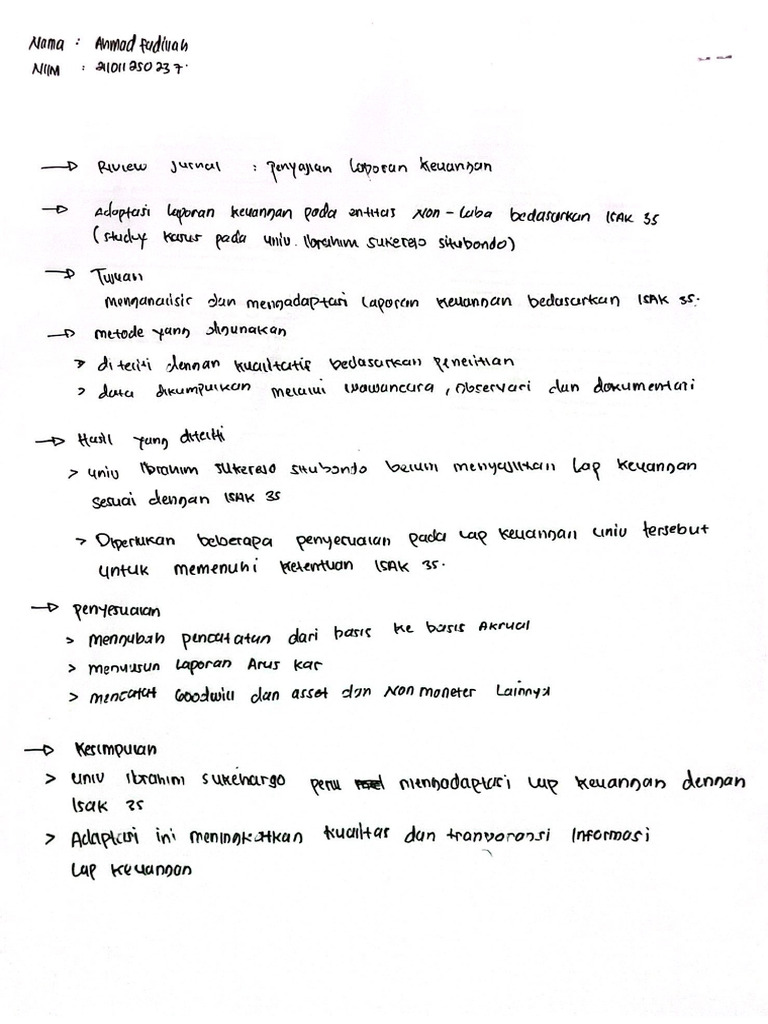 Nama : Ahmad fadilah
NIM : 211011250237.
→ Riview Jurnal : Penyajian Laporan Keuangan
→ Adaptasi Laporan Keuangan pada entitas Non-Laba bedasarkan ISAK 35
(study kasus pada univ. Ibrahim Sukerejo Situbondo)
→ Tujuan
Menganalisis dan mengadaptasi Laporan Keuangan bedasarkan ISAK 35.
→ metode yang digunakan
> diteliti dengan kualitatif bedasarkan penelitian
> data dikumpulkan melalui wawancara, Observasi dan dokumentasi
→ Hasil yang diteliti
> univ Ibrahim Sukerejo Situbondo belum menyajikan Lap Keuangan
sesuai dengan ISAK 35
> Diperlukan beberapa penyesuaian pada Lap Keuangan univ tersebut
untuk memenuhi Ketentuan ISAK 35.
→ penyesuaian
> mengubah pencatatan dari basis ke basis Akrual
> menyusun Laporan Arus kas
> mencatat Goodwill dan asset dan Non moneter Lainnya
→ Kesimpulan
> univ Ibrahim Sukehargo perlu mengadaptasi Lap Keuangan dengan
Isak 35
> Adaptasi ini meningkatkan kualitas dan Informasi
Lap Keuangan